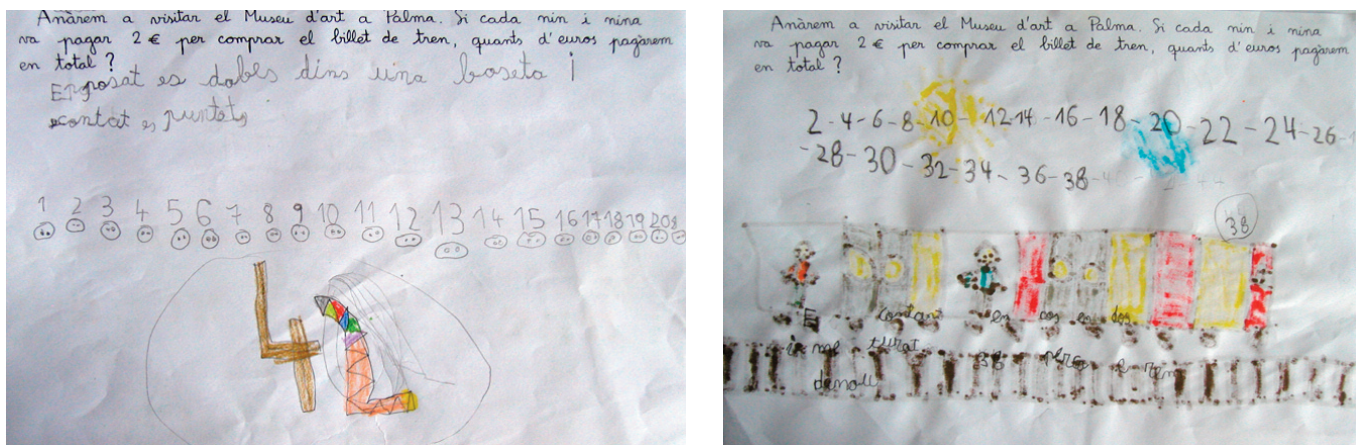 Anàrem a visitar el Museu d'art a Palma. Si cada nin i nina
va pagar 2 € per comprar el billet de tren, quants d'euros pagàrem
en total?
posat es dobles dins una boseta i
contat es puntets
1 2 3 4 5 6 7 8 9 10 11 12 13 14 15 16 17 18 19 20
Anàrem a visitar el Museu d'art a Palma. Si cada nin i nina
va pagar 2 € per comprar el billet de tren, quants d'euros pagàrem
en total?
2-4-6-8-10-12-14-16-18-20-22-24-26-
-28-30-32-34-36-38
38
contant en dos en dos
38